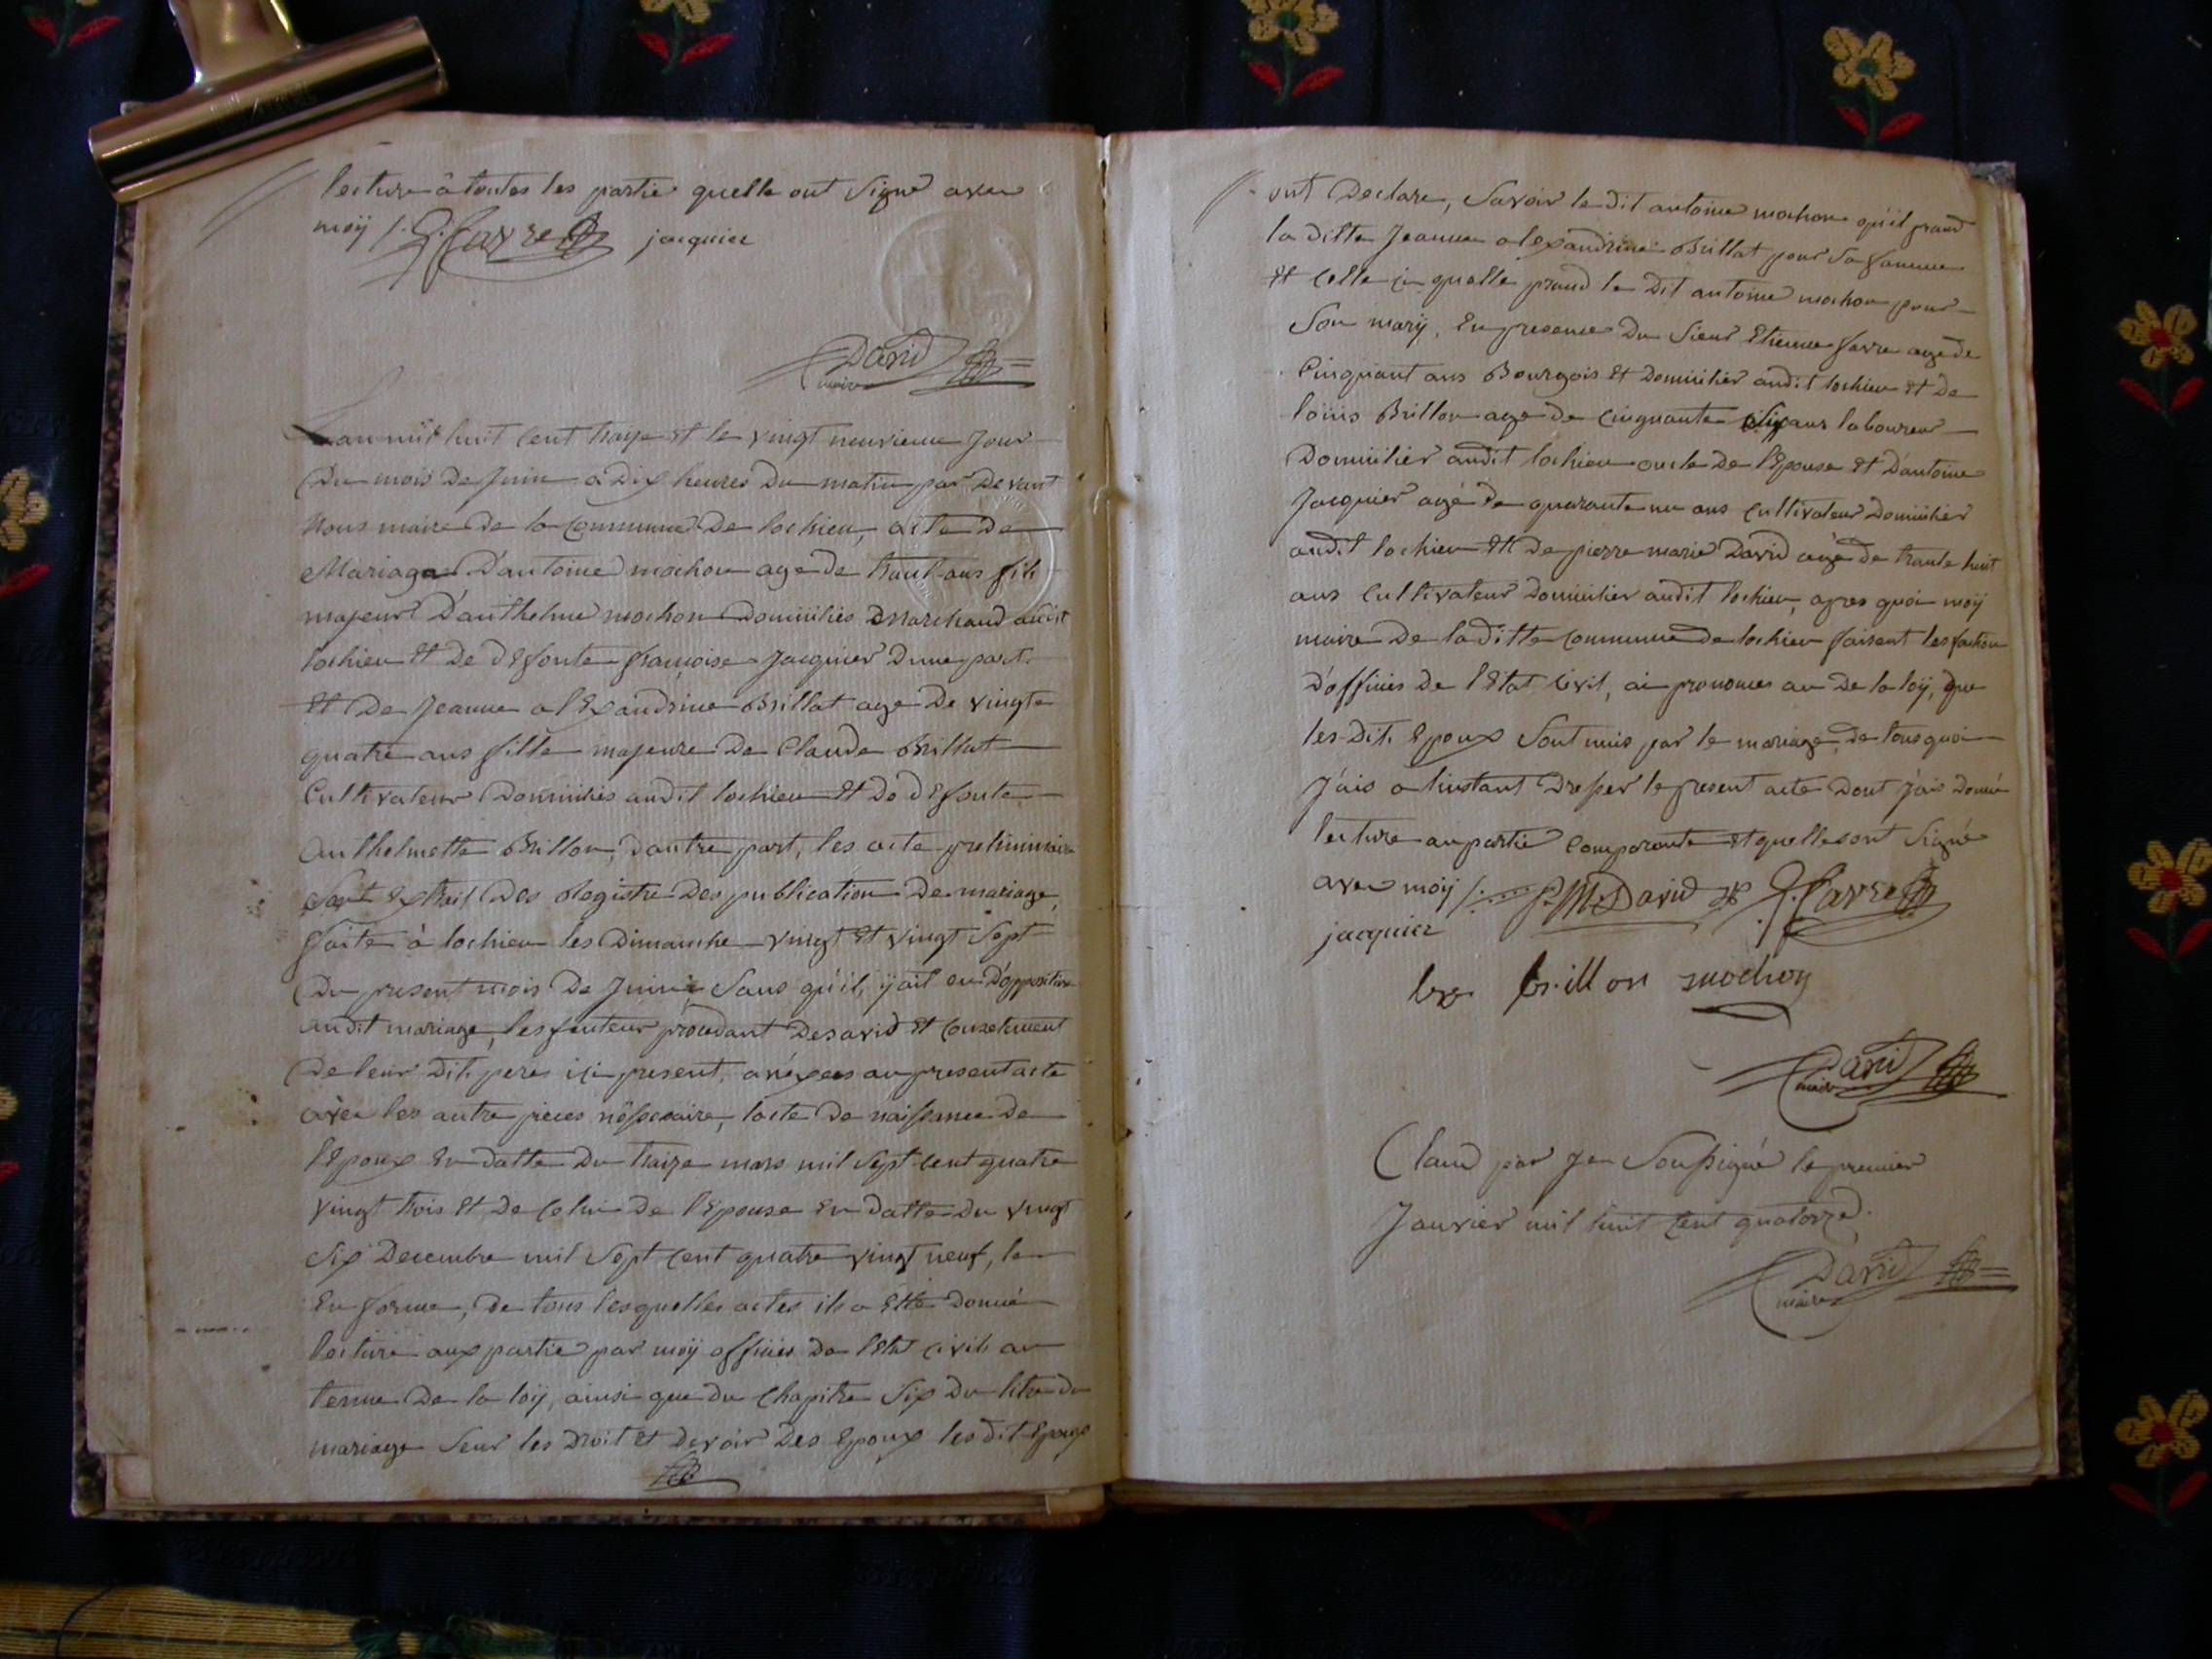 lecture â toutes les partie quelle ont Signé avec
moÿ /. E. favre jacquier
David
maire
Lan mil huit cent traize et le vingt neuvieme Jour
Du mois De Juin a Dix heures Du matin par Devant
Nous maire De la Commune De lochieu, acte De
Mariage D'antoine mochon age de trant ans fils
majeur D'anthelme mochon Domiciliés Marchand audit
lochieu et De defonte françoise Jacquier Dune part.
et De Jeanne alexandrine Brillat age De vingte
quatre ans fille majeure De Claude Brillat
Cultivateur Domiciliés audit lochieu et De defonte
Anthelmette Brillon, d'autre part, les acte preliminaire
Sont extrait Des Registre Des publication De mariage,
faite à lochieu les Dimanche vingt et vingt Sept
Du present mois De Juin Sans qu'il, y ait eu D'opposition
audit mariage, les futeur procedant Des avid et Consetement
De leur Dit, peres ici present, anexees au present acte
avec les autre pieces néssesaire, lacte De naissance De
lepoux En datte Du traize mars mil Sept cent quatre
vingt trois et De Celui De lepouse En datte Du vingt
Six Decembre mil Sept cent quatre vingt neuf, le
En forme, De tous lesquelles actes il a etté donné
lecture aux partie par moÿ officier De letat civil au
terme De la loÿ, ainsi que du Chapitre Six Du titre du
mariage Seur les Droit et Devoir Des Epoux les dit Epoux
ont Declare, Savoir le Dit antoine mochon qu'il prand
la ditte Jeanne alexandrine Brillat pour Sa famme
et Celle ci quelle prand le Dit antoine mochon pour
Son marÿ, En presence Du Sieur Etienne favre age de
Cinquant ans Bourgois et Domicilier audit lochieu et De
loüis Brillon age De Cinquante Six ans laboureur
Domicilier audit lochieu oncle De l'Epouse et D'antoine
Jacquier agé De quarante un ans Cultivateur Domicilier
audit lochieu et De pierre marie David agé de trante huit
ans Cultivateur Domicilier audit lochieu, apres quoi moÿ
maire De la ditte Commune de lochieu faisent les fonction
D'officiés De l'Etat Civil, ai prononces au De la loÿ, que
les Dit, Epoux Sont unis par le mariage, de tous quoi
J'ais a l'instant Dresser le present acte Dont J'ais Donné
lecture au partie Comparente et quelle sont Signé
avec moÿ /. P. M. David E. favre
jacquier
brillon mochon
David
maire
Claud par Je Soussigné le premier
Janvier mil huit Cent quatorze.
David
maire